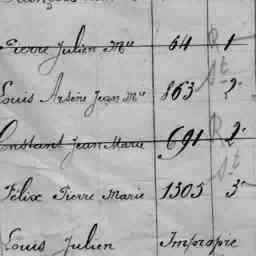 Pierre Julien Mie 64 R 1
Louis Arsène Jean Mie 863 St 2
Constant Jean Marie 691 R 2
Félix Pierre Marie 1305 St 3
Louis Julien Impropre